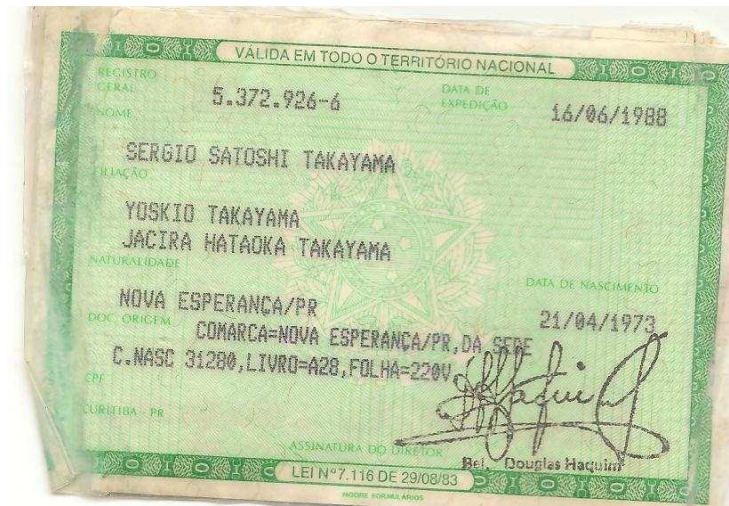 VÁLIDA EM TODO O TERRITÓRIO NACIONAL
REGISTRO GERAL 5.372.926-6 DATA DE EXPEDIÇÃO 16/06/1988
NOME
SERGIO SATOSHI TAKAYAMA
FILIAÇÃO
YOSKIO TAKAYAMA
JACIRA HATAOKA TAKAYAMA
NATURALIDADE DATA DE NASCIMENTO
NOVA ESPERANÇA/PR 21/04/1973
DOC. ORIGEM COMARCA=NOVA ESPERANÇA/PR,DA SEDE
C.NASC 31280,LIVRO=A28,FOLHA=220V
CPF
CURITIBA - PR
ASSINATURA DO DIRETOR
Bel. Douglas Haquim
LEI Nº 7.116 DE 29/08/83
MOORE FORMULÁRIOS